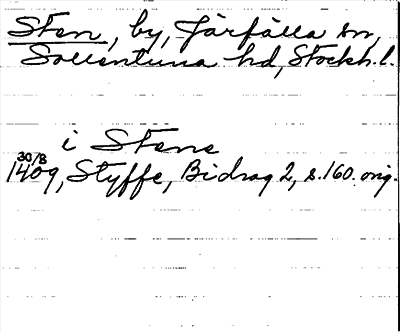 Sten, by, Järfälla sn,
Sollentuna hd, Stockh. l.
i Stene
30/8
1409, Styffe, Bidrag 2, s. 160. orig.